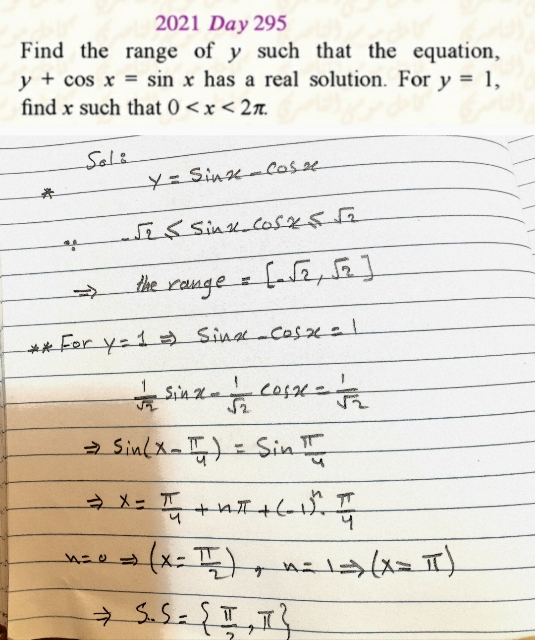 2021 Day 295
Find the range of y such that the equation,
y + cos x = sin x has a real solution. For y = 1,
find x such that 0 < x < 2π.
Sol:
* y = Sinx - Cosx
∵ -√2 ≤ Sinx - Cosx ≤ √2
⇒ the range = [-√2, √2]
** For y=1 ⇒ Sinx - Cosx = 1
1/√2 Sinx - 1/√2 Cosx = 1/√2
⇒ Sin(x - π/4) = Sin π/4
⇒ x = π/4 + nπ + (-1)ⁿ. π/4
n=0 ⇒ (x = π/2), n=1 ⇒ (x = π)
⇒ S.S = {π/2, π}